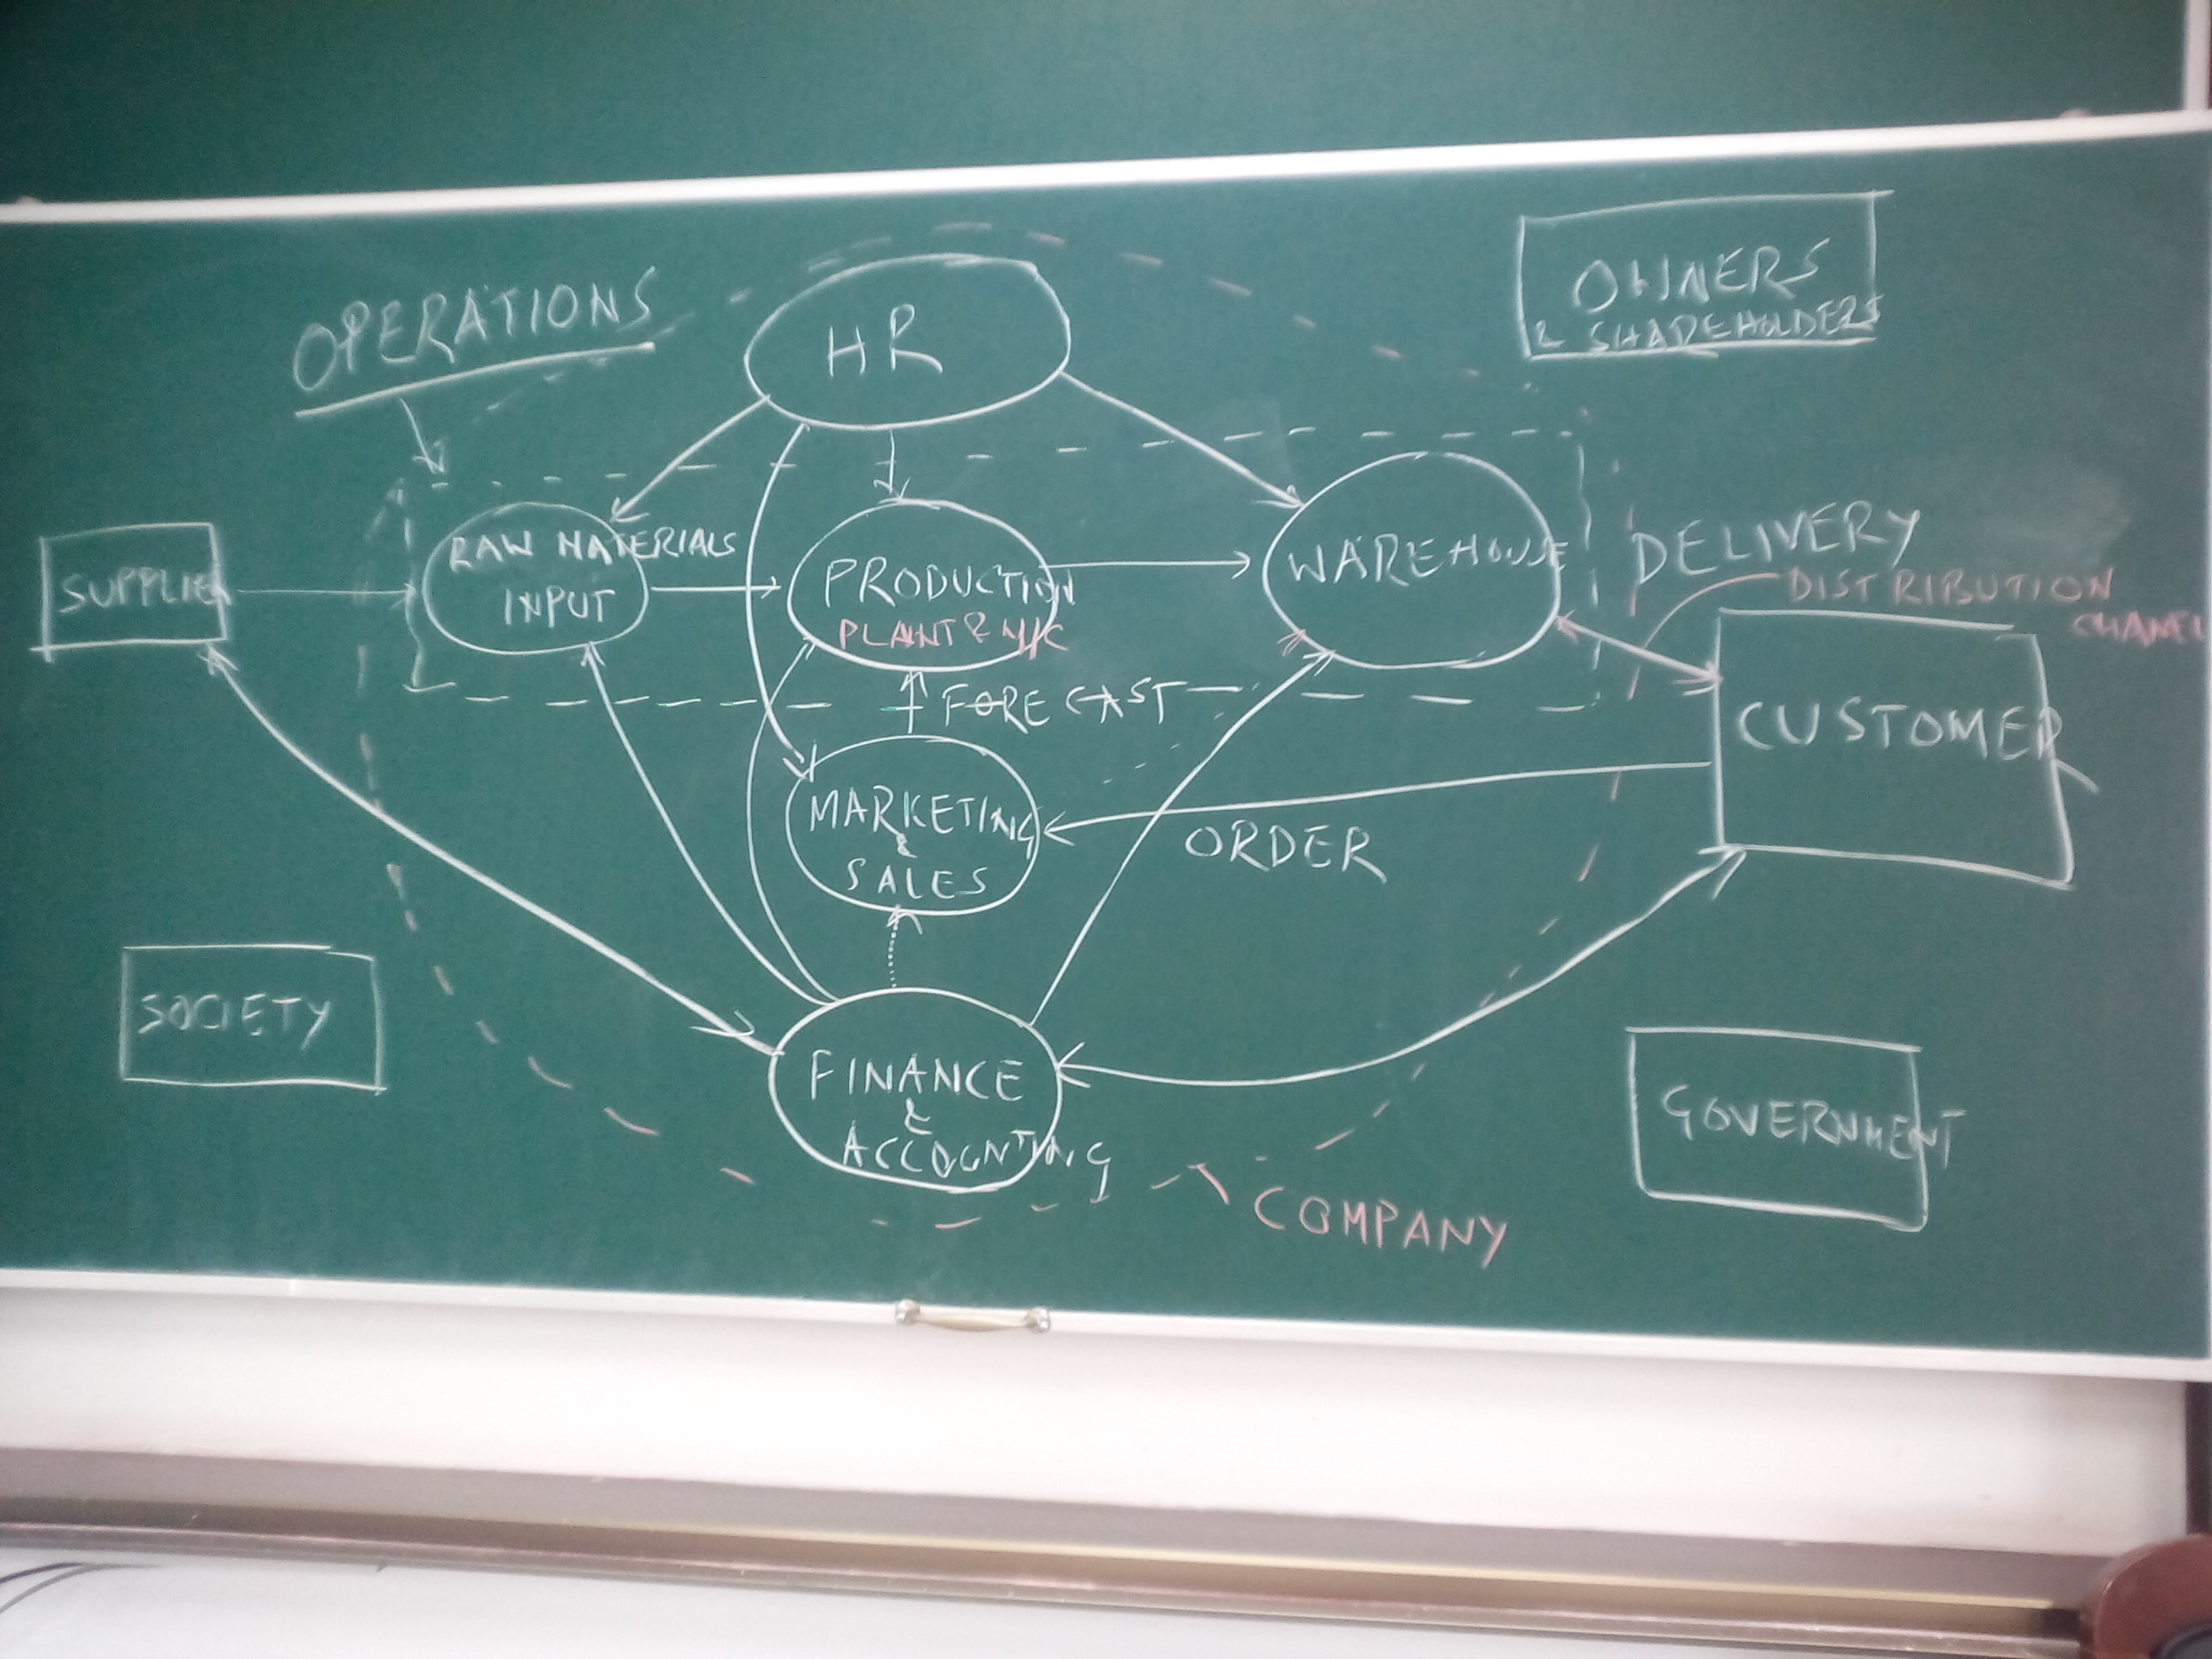 OPERATIONS
HR
OWNERS
& SHAREHOLDERS
SUPPLIER
RAW MATERIALS
INPUT
PRODUCTION
PLANT & M/C
WAREHOUSE
DELIVERY
DISTRIBUTION
CHANEL
FORECAST
CUSTOMER
MARKETING
&
SALES
ORDER
SOCIETY
FINANCE
&
ACCOUNTING
GOVERNMENT
COMPANY